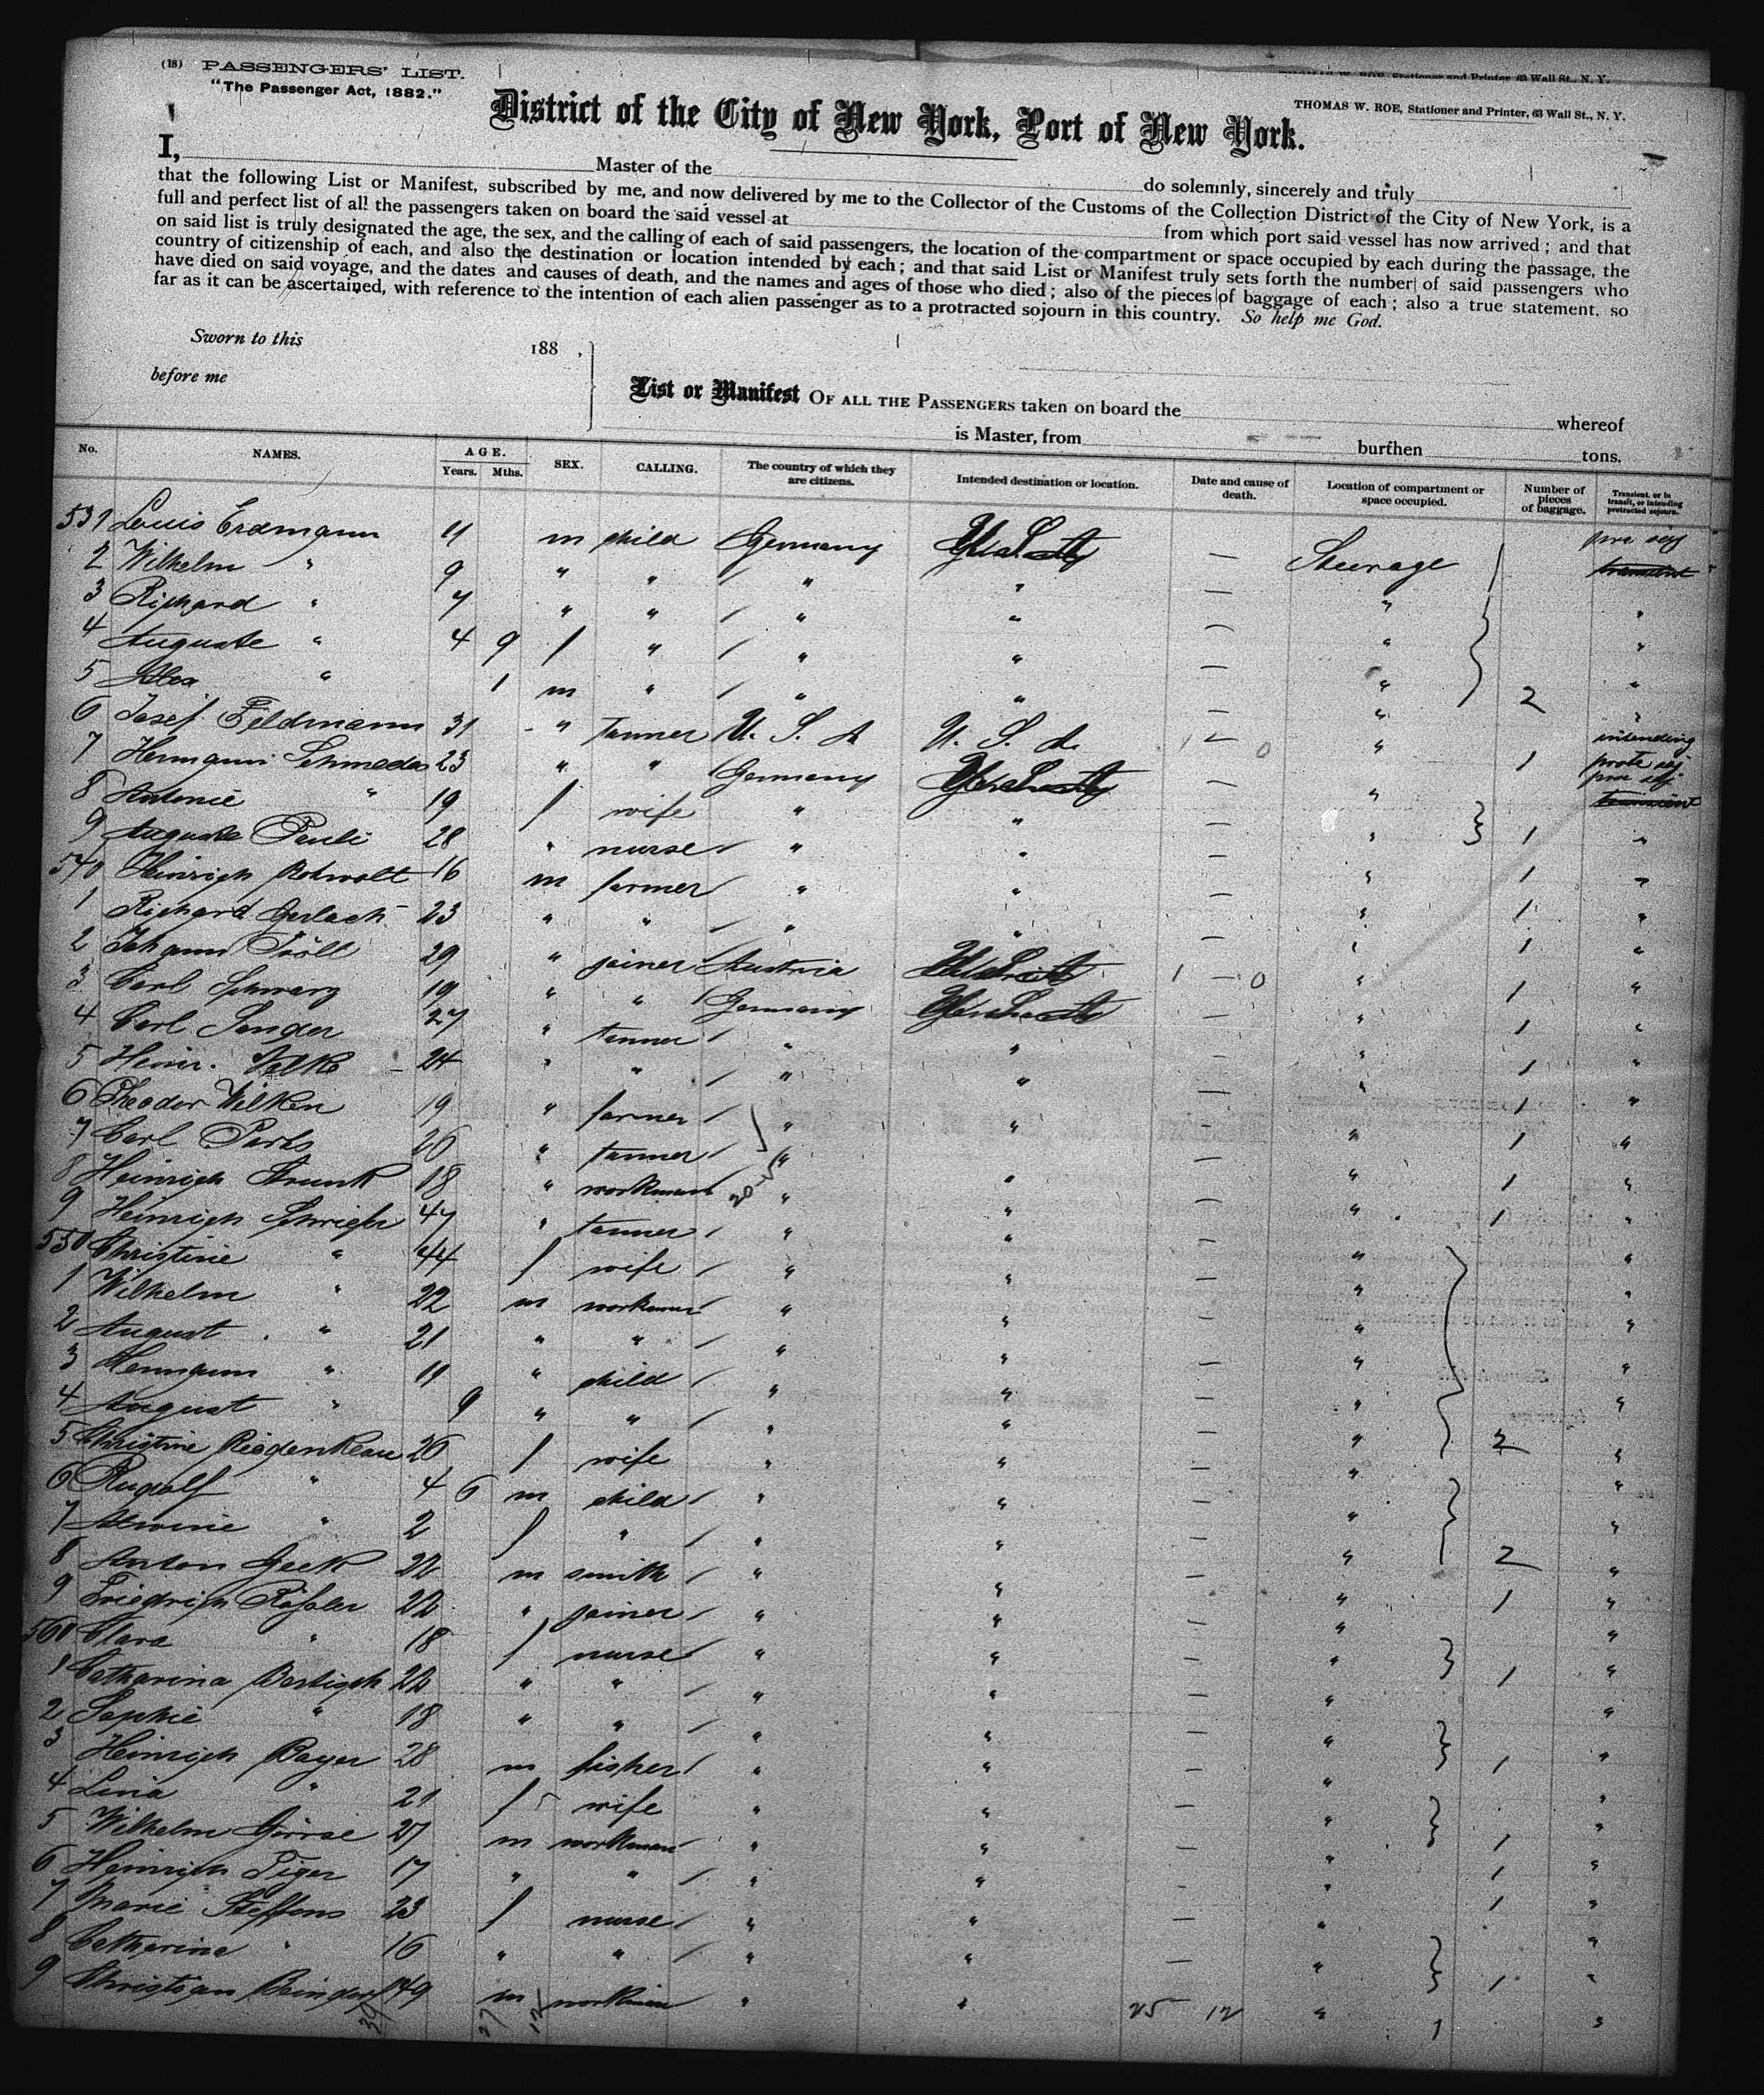 (18) PASSENGERS' LIST.
"The Passenger Act, 1882."
THOMAS W. ROE, Stationer and Printer, 63 Wall St., N. Y.
District of the City of New York, Port of New York.
I, Master of the do solemnly, sincerely and truly
that the following List or Manifest, subscribed by me, and now delivered by me to the Collector of the Customs of the Collection District of the City of New York, is a
full and perfect list of all the passengers taken on board the said vessel at from which port said vessel has now arrived; and that
on said list is truly designated the age, the sex, and the calling of each of said passengers, the location of the compartment or space occupied by each during the passage, the
country of citizenship of each, and also the destination or location intended by each; and that said List or Manifest truly sets forth the number of said passengers who
have died on said voyage, and the dates and causes of death, and the names and ages of those who died; also of the pieces of baggage of each; also a true statement, so
far as it can be ascertained, with reference to the intention of each alien passenger as to a protracted sojourn in this country. So help me God.
Sworn to this 188 ,
before me
List or Manifest OF ALL THE PASSENGERS taken on board the whereof
is Master, from burthen tons.
No. NAMES. AGE. Years. Mths. SEX. CALLING. The country of which they are citizens. Intended destination or location. Date and cause of death. Location of compartment or space occupied. Number of pieces of baggage. Transient, or in transit, or intending protracted sojourn.
531 Louis Erdmann 11 m child Germany — Steerage
2 Wilhelm " 9 " " " " — " transient
3 Richard " 7 " " " " — " "
4 Auguste " 4 9 f " " " — " "
5 " 1 m " " " — " 2 "
6 Josef Feldmann 31 " tanner U. S. A U. S. A. — " 1 intending
7 Hermann Schmeder 23 " " Germany — "
8 Antonie " 19 f wife " " — " 1 transient
9 Auguste Pauli 28 " nurse " " — " 1 "
540 Heinrich Rohwolt 16 m farmer " " — " 1 "
1 Richard Gerlach 23 " " " " — " 1 "
2 Johann 29 " joiner Austria — " 1 "
3 Carl Schwarz 19 " " Germany — " 1 "
4 Carl Sander 27 " tanner " " — " 1 "
5 Heinr. 24 " " " " — " 1 "
6 Theodor Wilken 19 " farmer " " — " 1 "
7 Carl 26 " tanner " " — " 1 "
8 Heinrich Strunk 18 " workman " " — " 1 "
9 Heinrich 47 " tanner " " — " "
550 Christine " 44 f wife " " — " "
1 Wilhelm " 22 m workman " " — " "
2 August " 21 " " " " — " "
3 Hermann " 11 " child " " — " "
4 August " 9 " " " " — " 2 "
5 Christine 26 f wife " " — " "
6 Rudolf " 4 6 m child " " — " "
7 Alwine " 2 f " " " — " 2 "
8 Anton Geek 22 m smith " " — " 1 "
9 Friedrich 22 " joiner " " — " "
560 Clara " 18 f nurse " " — " 1 "
1 Catharina 22 " " " " — " "
2 Sophie " 18 " " " " — " 1 "
3 Heinrich Bayer 28 m fisher " " — " "
4 Lina " 21 f wife " " — " 1 "
5 Wilhelm 27 m workman " " — " 1 "
6 Heinrich Tiger 17 " " " " — " 1 "
7 Marie Steffens 23 f nurse " " — " "
8 Catharina " 16 " " " " — " 1 "
9 Christian 49 m workman " " " 1 "
39 27 12 25 12